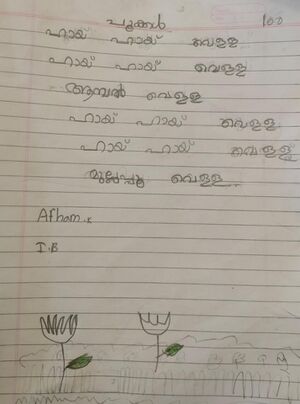 പൂക്കൾ 100
ഹായ് ഹായ് വെള്ള
ഹായ് ഹായ് വെള്ള
ആമ്പൽ വെള്ള
ഹായ് ഹായ് വെള്ള
ഹായ് ഹായ് വെള്ള
മുല്ലപ്പൂ വെള്ള
Afham.k
I.B